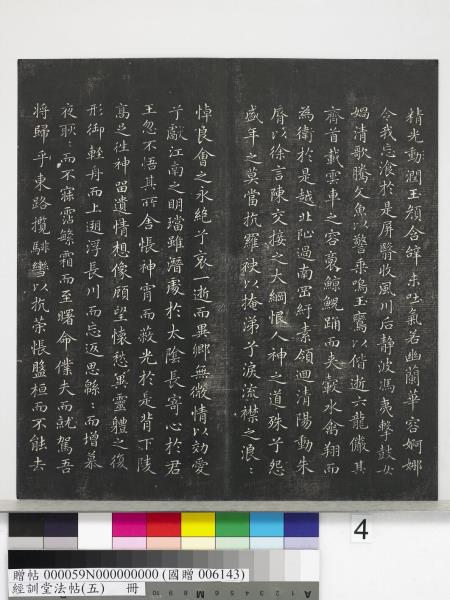 精光動潤玉顏含辭未吐氣若幽蘭華容婀娜
令我忘湌於是屏翳收風川后静波馮夷擊鼓女
媧清歌騰文魚以警乘鳴玉鸞以偕逝六龍儼其
齊首載雲車之容裔鯨鯢踊而夾轂水禽翔而
為衛於是越北沚過南岡紆素領迴清陽動朱
脣以徐言陳交接之大綱恨人神之道殊兮怨
盛年之莫當抗羅袂以掩涕兮淚流襟之浪:
悼良會之永絕兮哀一逝而異鄉無微情以効愛
兮獻江南之明璫雖潛處於太陰長寄心於君
王忽不悟其所舍悵神宵而蔽光於是背下陵
高足往神留遺情想像顧望懷愁冀靈體之復
形御輕舟而上遡浮長川而忘返思緜:而增慕
夜耿:而不寐霑繁霜而至曙命僕夫而就駕吾
將歸乎東路攬騑轡以抗策悵盤桓而不能去
4
贈帖 000059N000000000 (國贈 006143)
經訓堂法帖(五) 冊